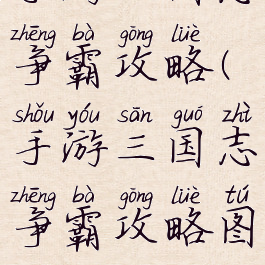 zhēng bà gōng lüè
争霸攻略(
shǒu yóu sān guó zhì
手游三国志
zhēng bà gōng lüè tú
争霸攻略图